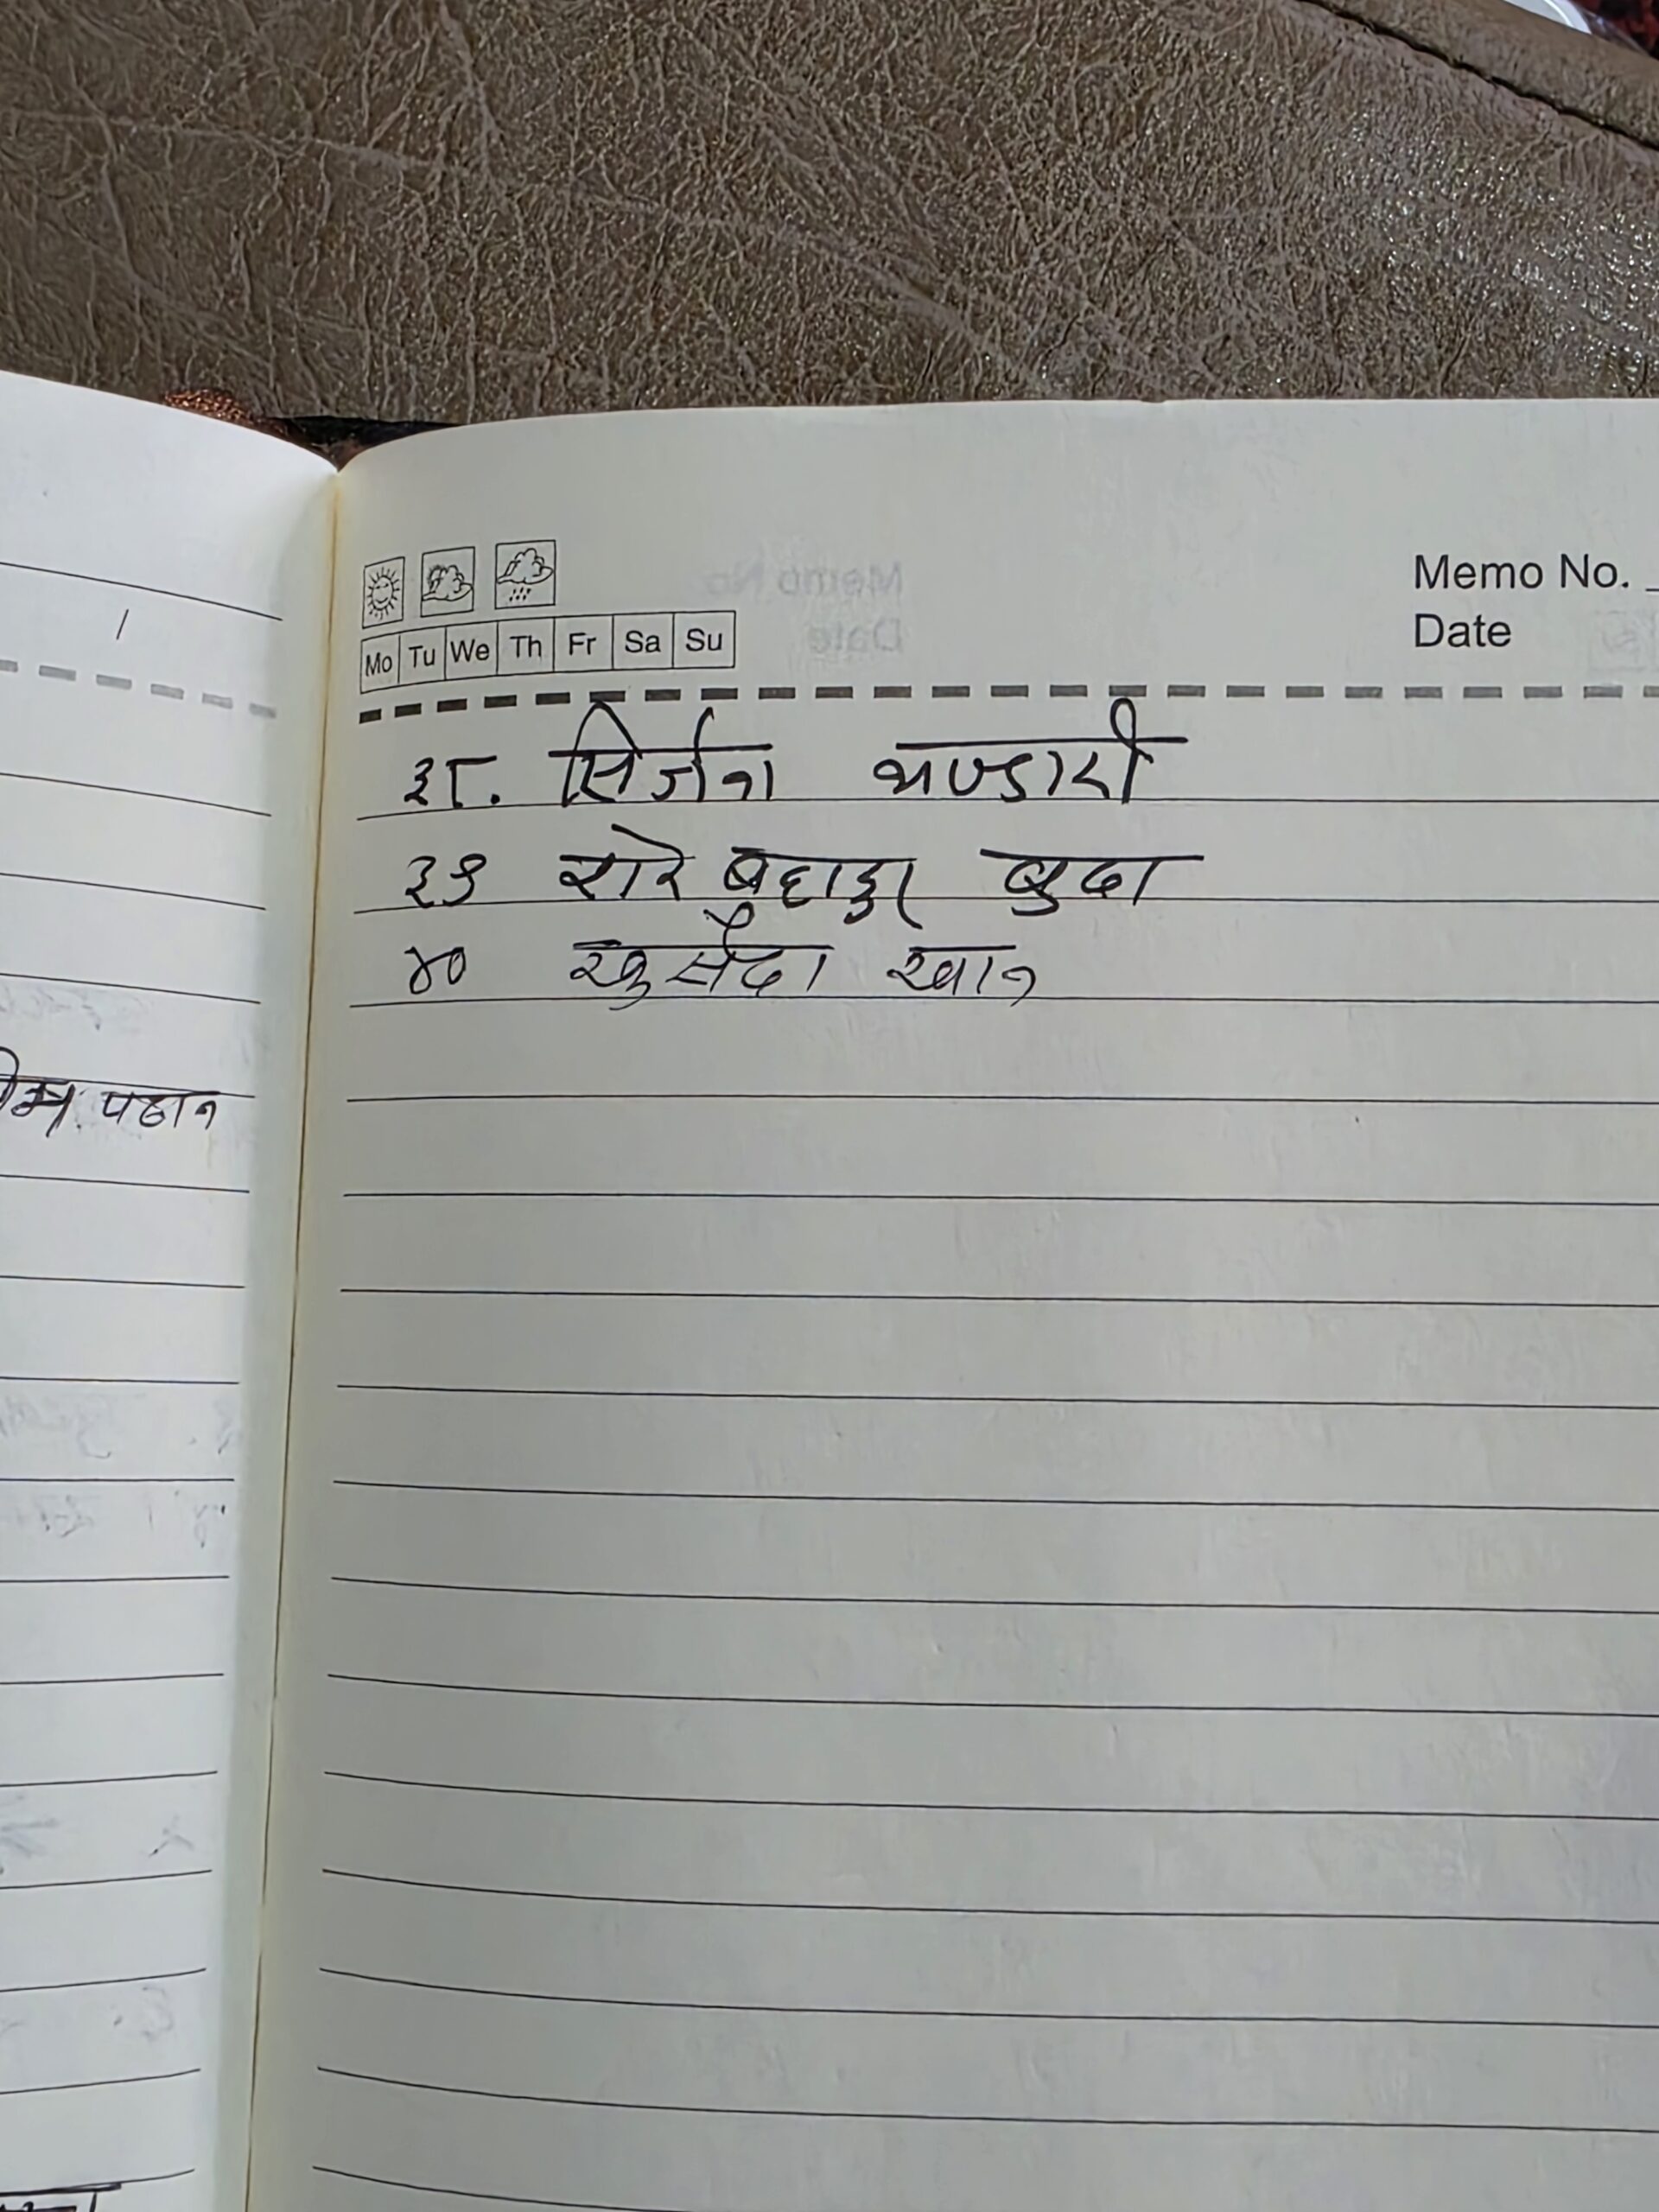 Memo No.
Date
Mo Tu We Th Fr Sa Su
३८. सिर्जना भण्डारी
३९ राने बहादुर बुढा
४० खुर्सेदा खान
पठान